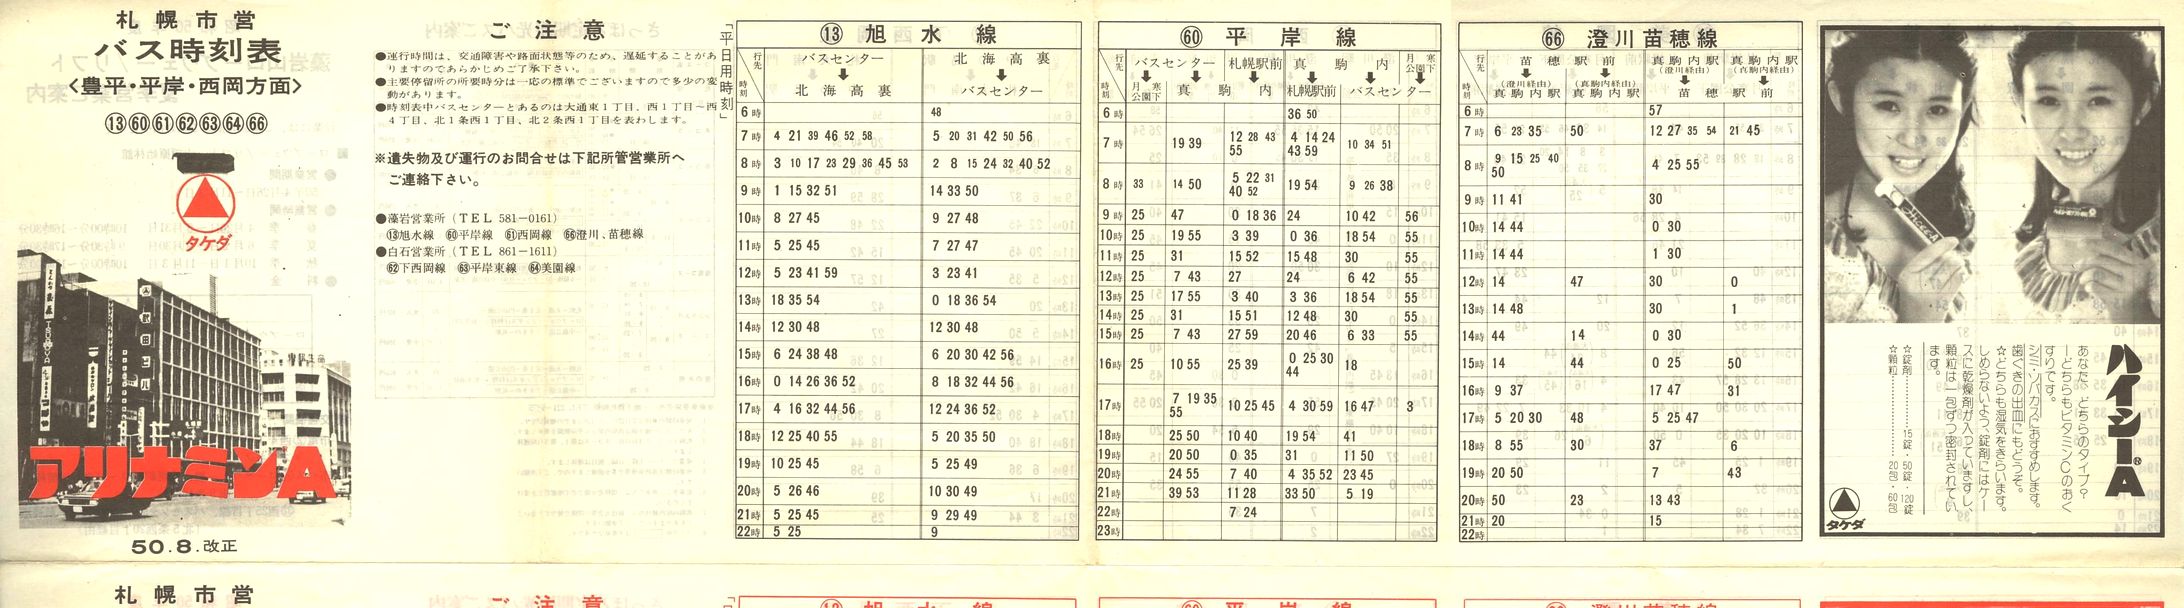 札幌市営
バス時刻表
<豊平・平岸・西岡方面>
⑬60 61 62 63 64 66
タケダ
アリナミンA
50.8.改正
ご注意
●運行時間は、交通障害や路面状態等のため、遅延することがあ
りますのであらかじめご了承下さい。
●主要停留所の所要時分は一応の標準でございますので多少の変
動があります。
●時刻表中バスセンターとあるのは大通東1丁目、西1丁目〜西
4丁目、北1条西1丁目、北2条西1丁目を表わします。
※遺失物及び運行のお問合せは下記所管営業所へ
ご連絡下さい。
●藻岩営業所(TEL 581-0161)
⑬旭水線 60平岸線 61西岡線 66澄川、苗穂線
●白石営業所(TEL 861-1611)
62下西岡線 63平岸東線 64美園線
「平日用時刻」
⑬ 旭水線
行先 時刻 バスセンター ➡ 北海高裏 北海高裏 ➡ バスセンター
6時 48
7時 4 21 39 46 52 58 5 20 31 42 50 56
8時 3 10 17 23 29 36 45 53 2 8 15 24 32 40 52
9時 1 15 32 51 14 33 50
10時 8 27 45 9 27 48
11時 5 25 45 7 27 47
12時 5 23 41 59 3 23 41
13時 18 35 54 0 18 36 54
14時 12 30 48 12 30 48
15時 6 24 38 48 6 20 30 42 56
16時 0 14 26 36 52 8 18 32 44 56
17時 4 16 32 44 56 12 24 36 52
18時 12 25 40 55 5 20 35 50
19時 10 25 45 5 25 49
20時 5 26 46 10 30 49
21時 5 25 45 9 29 49
22時 5 25 9
60 平岸線
行先 時刻 バスセンター 札幌駅前 真駒内 月寒公園下
月寒公園下 真駒内 札幌駅前 バスセンター
6時 36 50
7時 19 39 12 28 43 55 4 14 24 43 59 10 34 51
8時 33 14 50 5 22 31 40 52 19 54 9 26 38
9時 25 47 0 18 36 24 10 42 56
10時 25 19 55 3 39 0 36 18 54 55
11時 25 31 15 52 15 48 30 55
12時 25 7 43 27 24 6 42 55
13時 25 17 55 3 40 3 36 18 54 55
14時 25 31 15 51 12 48 30 55
15時 25 7 43 27 59 20 46 6 33 55
16時 25 10 55 25 39 0 25 30 44 18
17時 7 19 35 55 10 25 45 4 30 59 16 47 3
18時 25 50 10 40 19 54 41
19時 20 50 0 35 31 11 50
20時 24 55 7 40 4 35 52 23 45
21時 39 53 11 28 33 50 5 19
22時 7 24
23時
66 澄川苗穂線
行先 時刻 苗穂駅前 真駒内駅(澄川経由) 真駒内駅(真駒内経由)
(澄川経由)真駒内駅 (真駒内経由)真駒内駅 苗穂駅前
6時 57
7時 6 23 35 50 12 27 35 54 21 45
8時 9 15 25 40 50 4 25 55
9時 11 41 30
10時 14 44 0 30
11時 14 44 1 30
12時 14 47 30 0
13時 14 48 30 1
14時 44 14 0 30
15時 14 44 0 25 50
16時 9 37 17 47 31
17時 5 20 30 48 5 25 47
18時 8 55 30 37 6
19時 20 50 7 43
20時 50 23 13 43
21時 20 15
22時
ハイシーA®
あなた、どちらのタイプ?
ーどちらもビタミンCのおく
すりです。
シミ・ソバカスにおすすめします。
歯ぐきの出血にもどうぞ。
☆どちらも湿気をきらいます。
しめらないよう、錠剤にはケー
スに乾燥剤が入っていますし、
顆粒は一包ずつ密封されてい
ます。
☆錠剤……15錠・50錠・120錠
☆顆粒……20包・60包
タケダ
札幌市営
ご注意